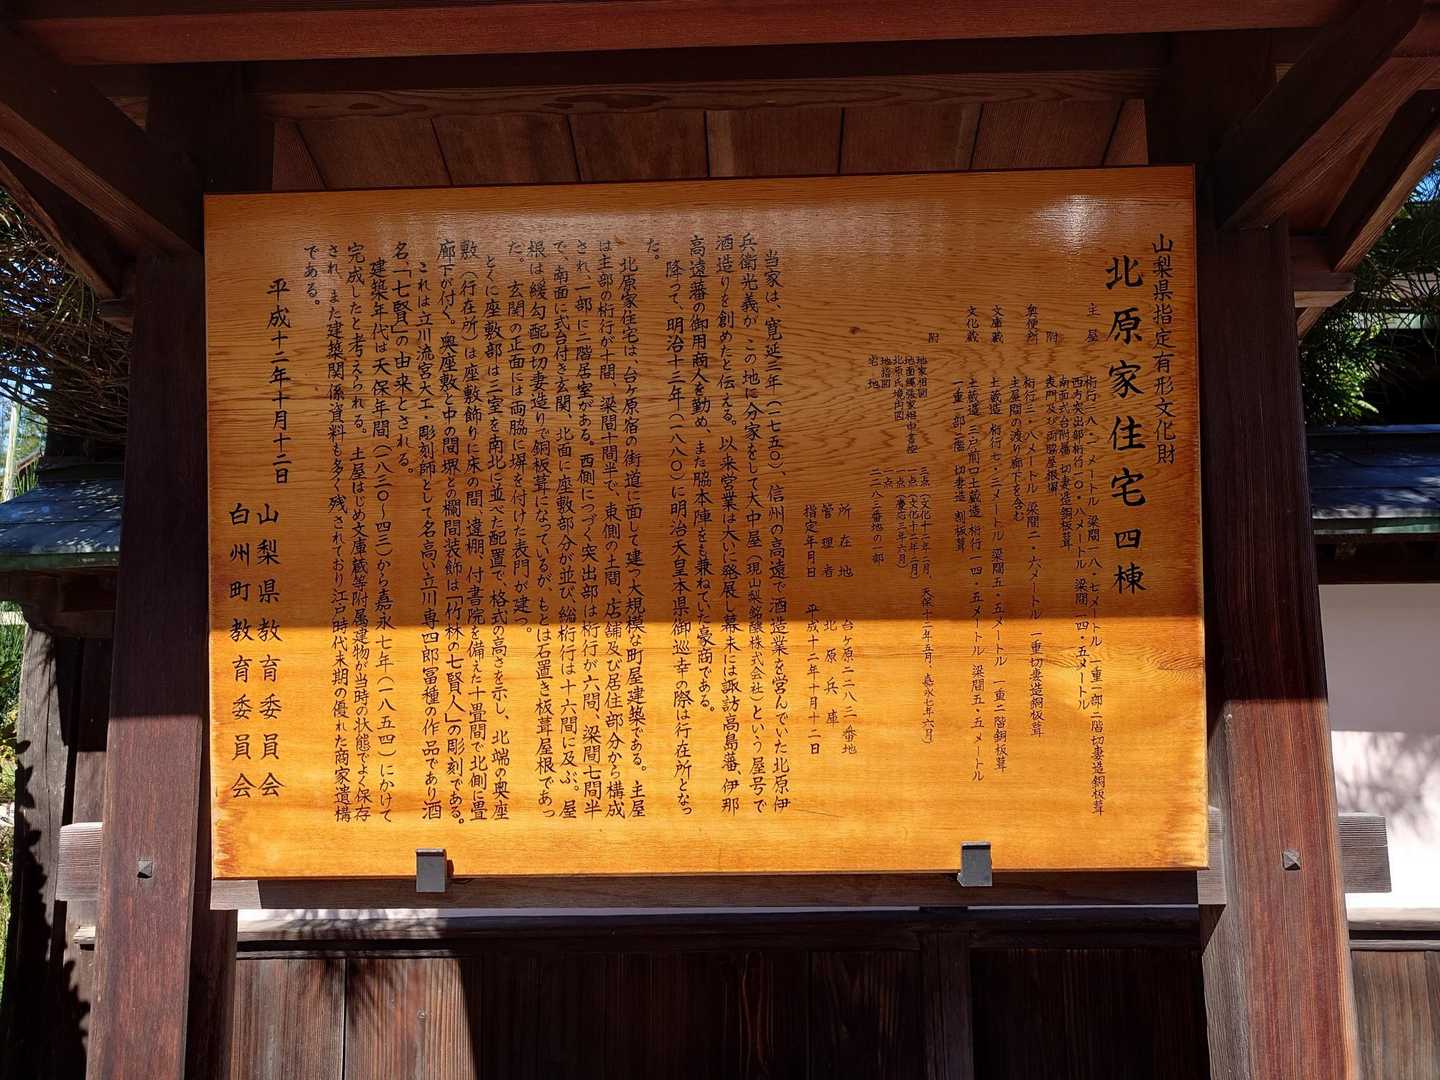 山梨県指定有形文化財
北原家住宅四棟
主屋
桁行二八・一メートル 梁間一八・七メートル 一重一部二階 切妻造銅板葺
西方突出部桁行一〇・八メートル 梁間一四・五メートル
南面式台附属 切妻造銅板葺
附
表門及び両脇屋根塀
奥便所
桁行三・八メートル 梁間二・六メートル 一重切妻造銅板葺
主屋間の渡り廊下を含む
文庫蔵
土蔵造 桁行七・三メートル 梁間五・五メートル 一重二階銅板葺
文化蔵
土蔵造 三戸前口土蔵造 桁行一四・五メートル 梁間五・五メートル
一重一部二階 切妻造 割板葺
附
地家相図 三点(文化十二年二月、天保十二年五月、嘉永七年六月)
一点(文化十二年二月)
一点(慶応三年六月)
地指図 一点
宅地 二二八三番地の一部
所在地 台ケ原二二八三番地
管理者 北原兵庫
指定年月日 平成十二年十月十二日
当家は、寛延三年(一七五〇)、信州の高遠で酒造業を営んでいた北原伊
兵衛光義が、この地に分家をして大中屋(現山梨銘醸株式会社)という屋号で
酒造りを創めたと伝える。以来営業は大いに発展し幕末には諏訪高島藩、伊那
高遠藩の御用商人を勤め、また脇本陣をも兼ねていた豪商である。
降って、明治十三年(一八八〇)に明治天皇本県御巡幸の際は行在所となっ
た。
北原家住宅は、台ケ原宿の街道に面して建つ大規模な町屋建築である。主屋
は主部の桁行が十間、梁間十間半で、東側の土間、店舗及び居住部分から構成
され、一部に二階居室がある。西側につづく突出部は桁行が六間、梁間七間半
で、南面に式台付き玄関、北面に座敷部分が並び総桁行は十六間に及ぶ。屋
根は緩勾配の切妻造りで銅板葺になっているが、もとは石置き板葺屋根であっ
た。玄関の正面には両脇に塀を付けた表門が建つ。
とくに座敷部は三室を南北に並べた配置で、格式の高さを示し、北端の奥座
敷(行在所)は座敷飾りに床の間、違棚、付書院を備えた十畳間で北側に畳
廊下が付く。奥座敷と中の間堺との欄間装飾は「竹林の七賢人」の彫刻である。
これは立川流宮大工・彫刻師として名高い立川専四郎冨種の作品であり酒
名「七賢」の由来とされる。
建築年代は天保年間(一八三〇〜四三)から嘉永七年(一八五四)にかけて
完成したと考えられる。土屋はじめ文庫蔵等附属建物が当時の状態でよく保存
され、また建築関係資料も多く残されており江戸時代末期の優れた商家遺構
である。
平成十二年十月十二日
山梨県教育委員会
白州町教育委員会